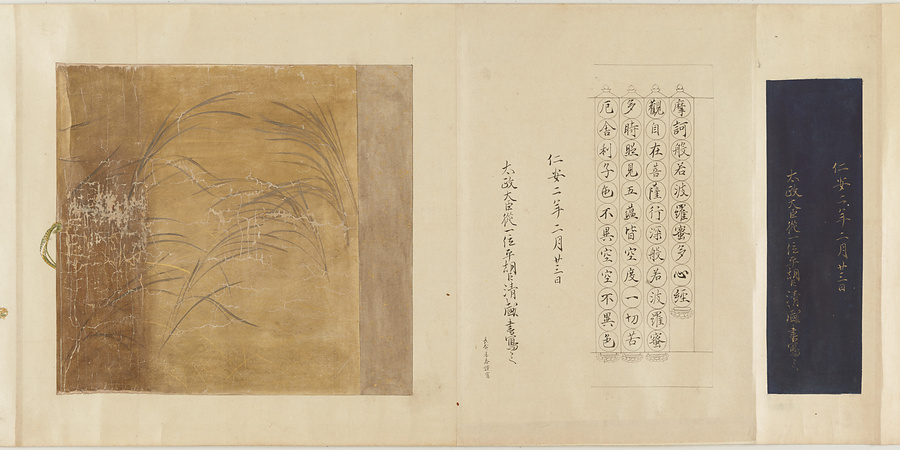 仁安二年二月廿三日
太政大臣從一位平朝臣清盛書寫之
摩訶般若波羅蜜多心經
觀自在菩薩行深般若波羅蜜
多時照見五蘊皆空度一切苦
厄舍利子色不異空空不異色
仁安二年二月廿三日
太政大臣從一位平朝臣清盛書寫之